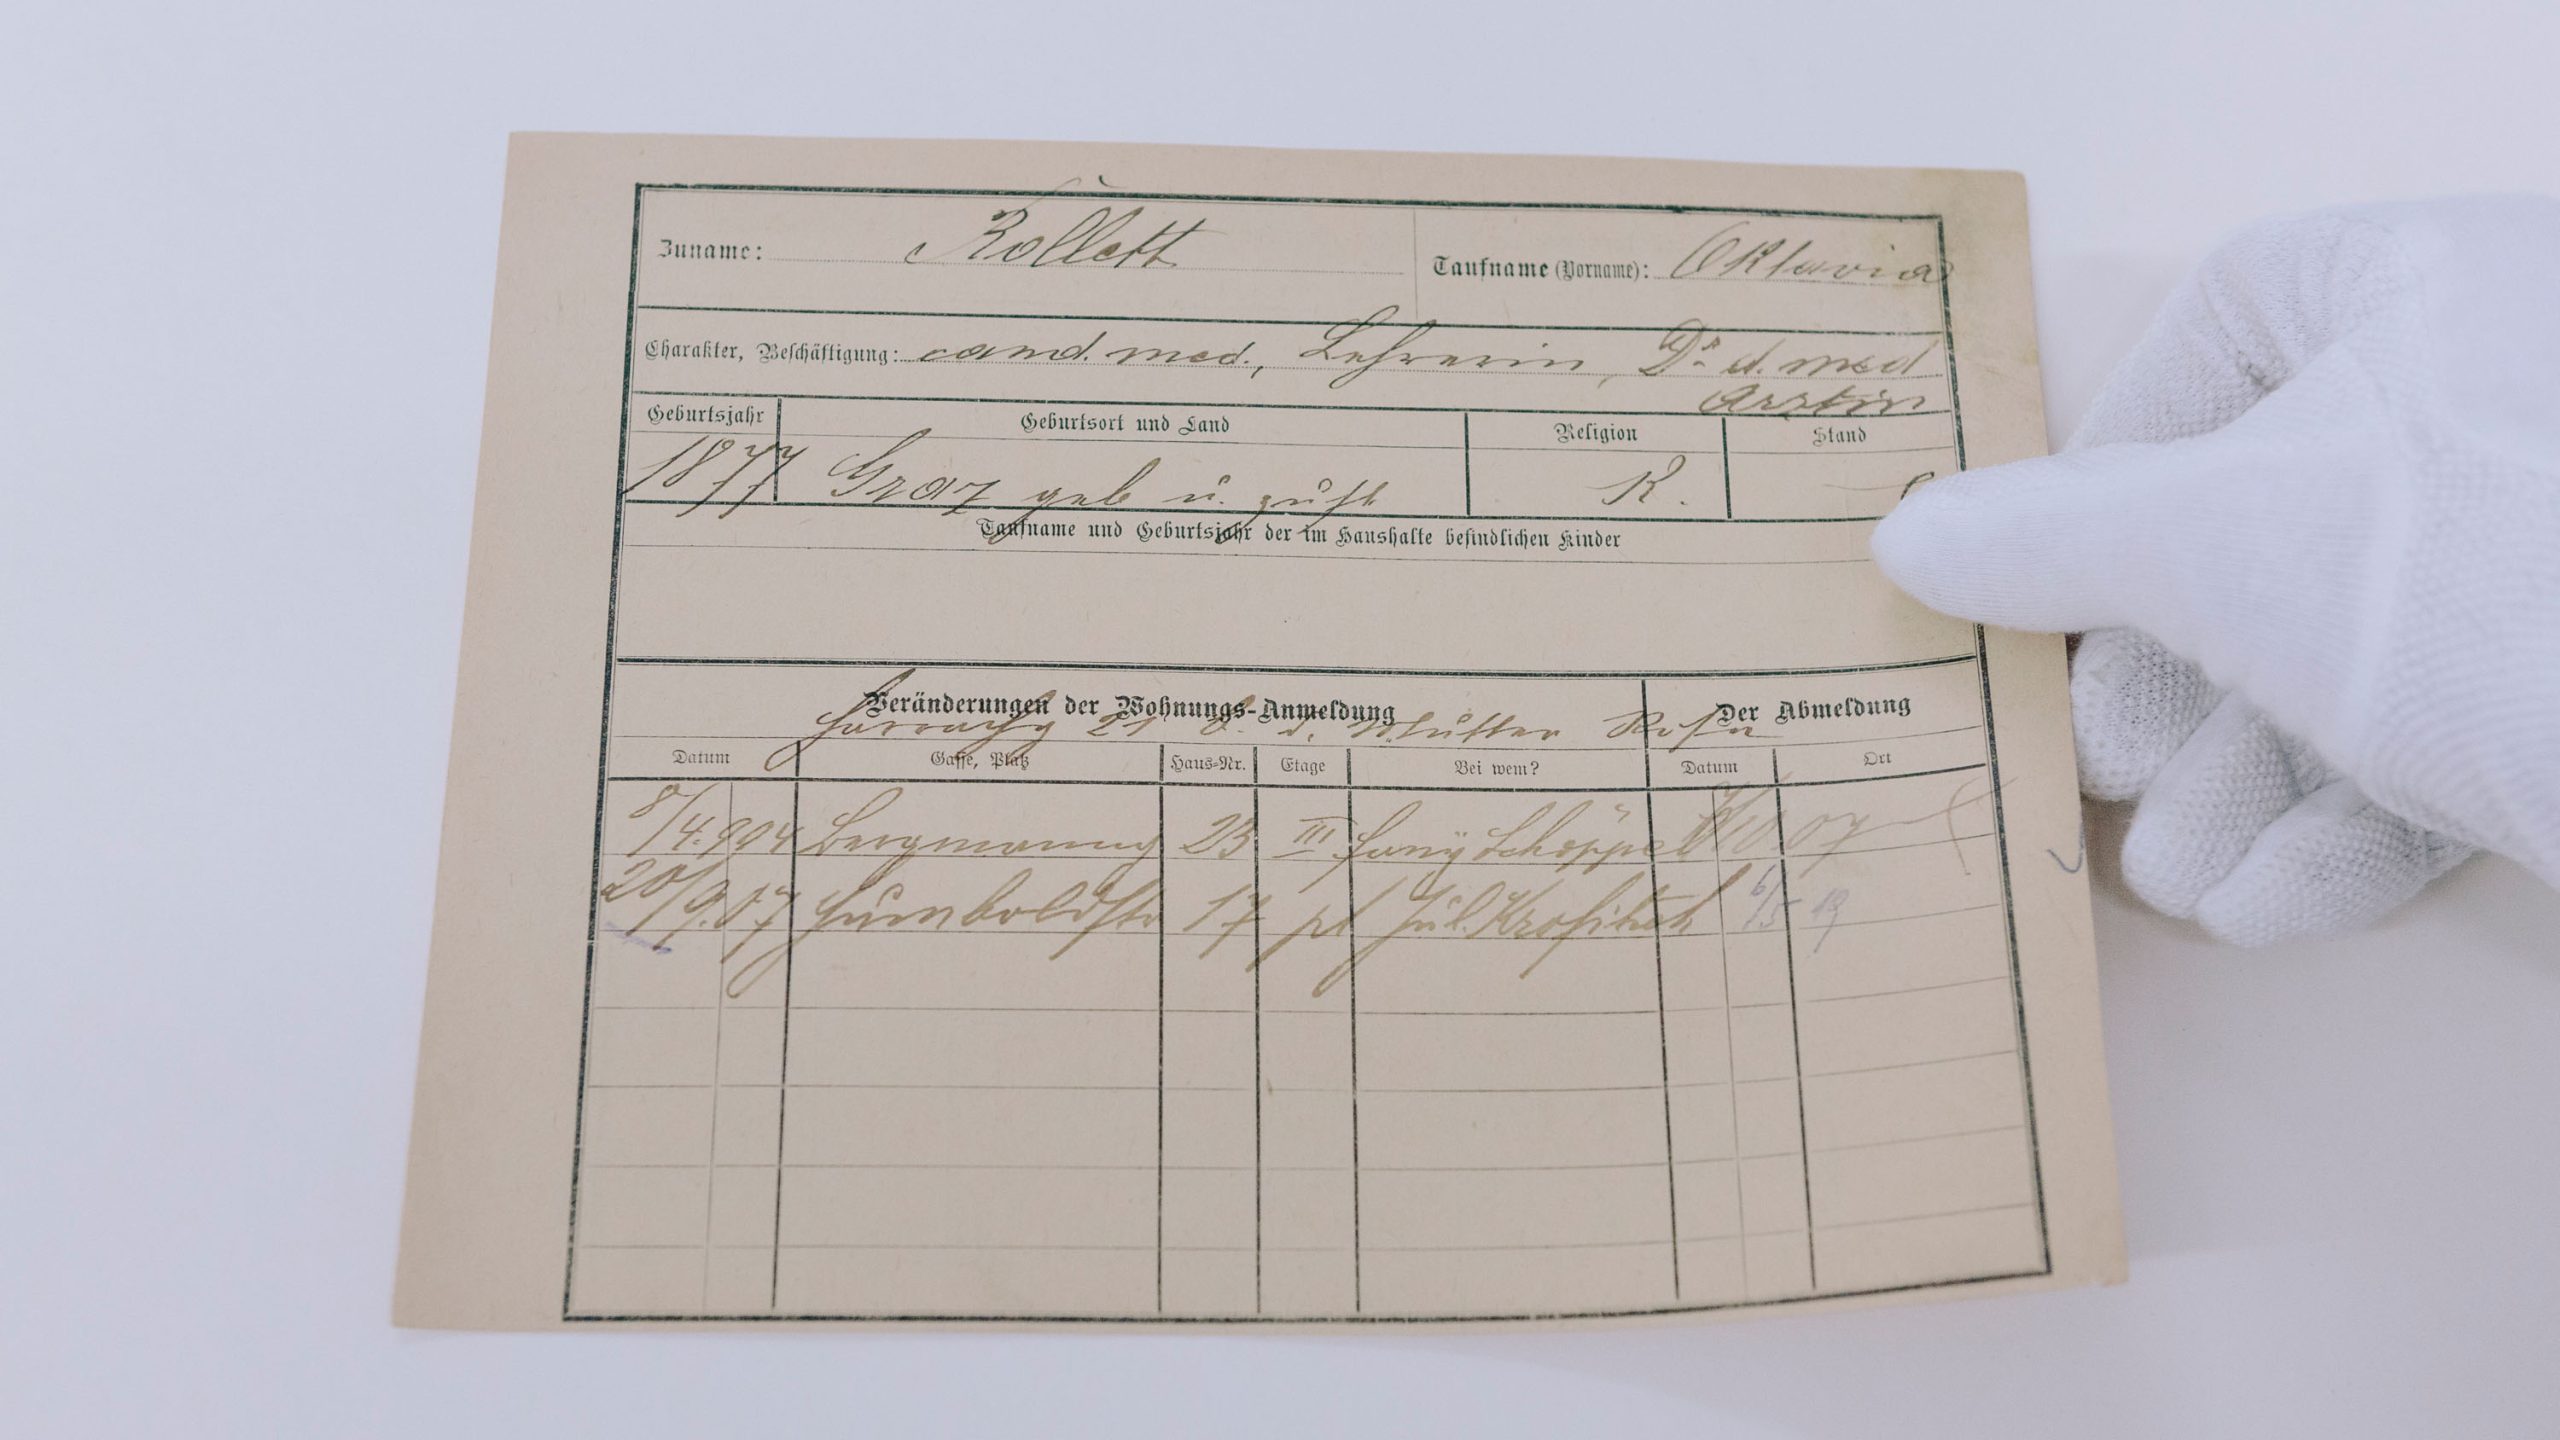 Zuname: Rollett Taufname (Vorname): Oktavia
Charakter, Beschäftigung: cand. med., Lehrerin, Dr. d. med
Ärztin
Geburtsjahr Geburtsort und Land Religion Stand
1877 Graz geb u. zust K.
Taufname und Geburtsjahr der im Haushalte befindlichen Kinder
Veränderungen der Wohnungs-Anmeldung Der Abmeldung
Harrachg 21 b. d. Mutter Rosa
Datum Gasse, Platz Haus-Nr. Etage Bei wem? Datum Ort
8/4.904 Bergmanng 23 III Fany Schöppel 10 07
20/9.07 Humboldstr 17 pt Jul. 6/5 19